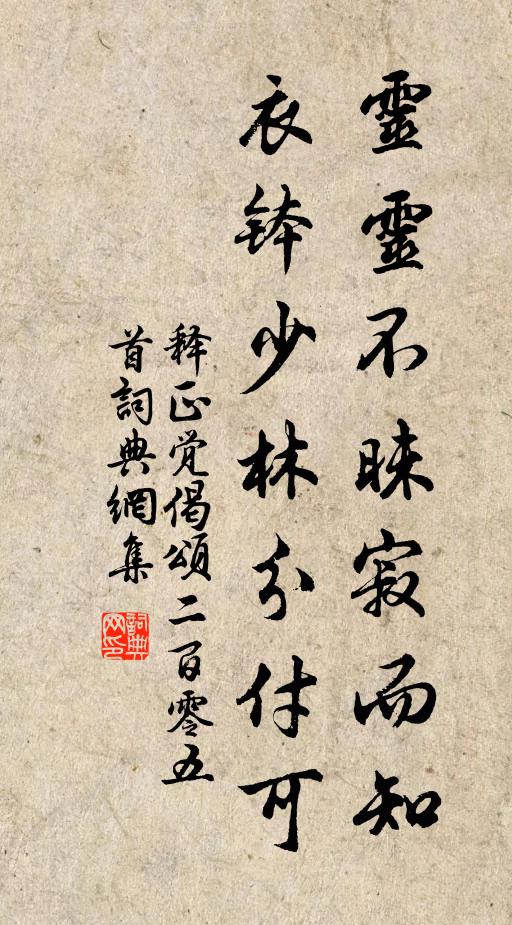 靈靈不昧寂而知
衣鉢少林分付可
释正觉偈頌二百零五
首詞典網集
詞典
网印